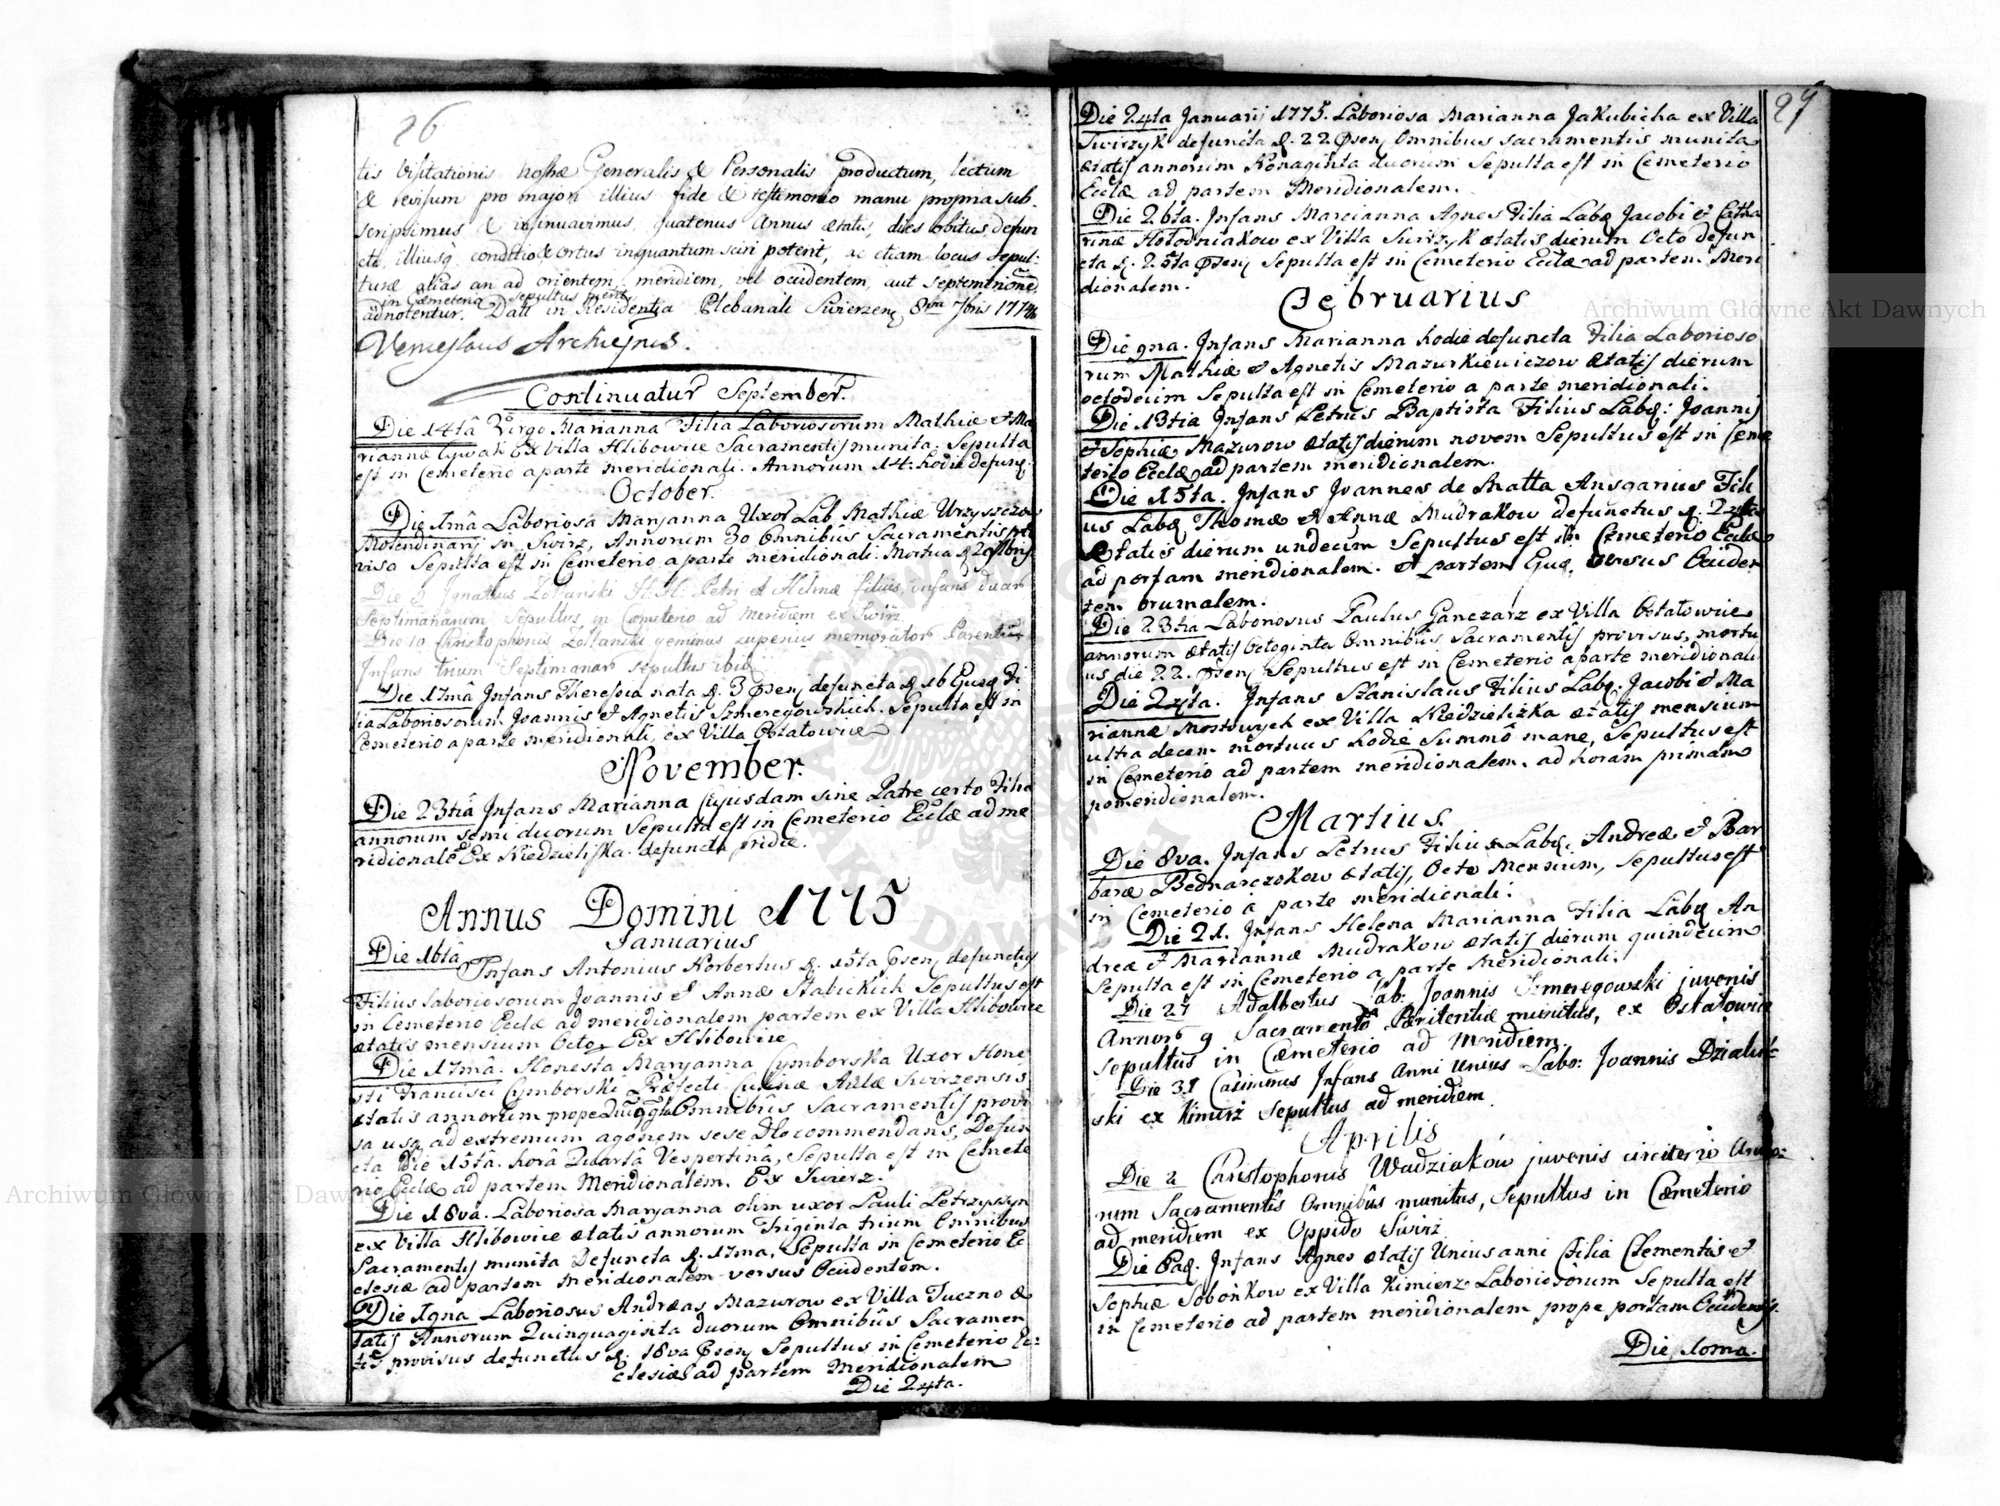 26
tis Visitationis nostræ Generalis & Personalis productum, lectum
& revisum pro majori illius fide & testimonio manu propria sub-
scripsimus & insinuavimus, quatenus Annus ætatis, dies obitus, defun
cti, illiusq conditio & ortus inquantum sciri poterit, ac etiam locus sepul-
turæ alias an ad orientem, meridiem, vel occidentem, aut septemtrionem
in Cæmeterio sepultus fuerit
adnotentur. Datt in Residentia Plebanali Swierzen, 8va 7bris 1774
Continuatur September.
Die 14tâ Virgo Marianna Filia Laboriosorum Mathiæ et Ma
riannæ Ex Villa Hlibowice Sacramentis munita. Sepulta
est in Cemeterio a parte meridionali. Annorum 14. hodie defunc.
October.
Die 1mâ Laboriosa Maryanna Uxor Lab. Mathiæ
Molendinarij in Swirz, Annorum 30 Omnibus Sacramentis pro
visa Sepulta est in Cemeterio a parte meridionali. Mortua
Die 9 Ignatius Zoltanski Petri et Helenæ filius, infans duar
Septimanarum, Sepultus in Cæmeterio ad Meridiem ex Swirz
Die 10 Christophorus Zoltanski geminus memorator Parentum
Infans trium Septimanar sepultus ibid
Die 17mâ Infans Theressia nata d. 3 defuncta d. 16 Fi
lia Laboriosorum Joannis et Agnetis Szmeregowskich. Sepulta est in
Cemeterio a parte meridionali, ex Villa Ostalowice
November.
Die 23tiâ Infans Marianna cujusdam sine Patre certo Filia
annorum semi duorum Sepulta est in Cemeterio Ecclæ ad me
ridionalē Ex Niedzieliska. defuncta pridie.
Annus Domini 1775
Januarius
Die 16tâ
Infans Antonius Norbertus d. 15ta defunctus
Filius laboriosorum Joannis et Annæ Slabickich Sepultus est
in Cemeterio Ecclæ ad meridionalem partem ex Villa Hlibowice
ætatis mensium Octo. Ex Hlibowice
Die 17mâ. Honesta Maryanna Cymborska Uxor Hone
sti Francisci Cymborski Præfecti Culinæ Aulæ Swirzensis
ætatis annorum prope Omnibus Sacramentis provi
sa usq ad extremum agonem sese Dno commendans, Defun
cta Die 15tâ. horâ Quartâ Vespertina, Sepulta est in Cemete
rio Ecclæ ad partem Meridionalem. Ex Swierz.
Die 18va. Laboriosa Maryanna olim uxor Pauli Petrzyszyn
ex Villa Hlibowice ætatis annorum Triginta trium Omnibus
Sacramentis munita Defuncta d. 17ma, Sepulta in Cemeterio Ec
clesiæ ad partem Meridionalem versus Occidentem.
Die 19na Laboriosus Andreas Mazurow ex Villa Tuczno æ
tatis Annorum Quinquaginta duorum Omnibus Sacramen
tis provisus defunctus d. 18va Sepultus in Cemeterio Ec=
clesiæ ad partem Meridionalem
Die 24ta.
27
Die 24ta Januarij 1775. Laboriosa Marianna Jakubicha ex Villa
Swirzyk defuncta d. 22 Omnibus sacramentis munita
ætatis annorum Nonaginta duorum Sepulta est in Cemeterio
Ecclæ ad partem Meridionalem.
Die 26ta. Infans Marcianna Agnes Filia Lab Jacobi et Catha
rinæ Holodniakow ex Villa Swirzyk ætatis dierum Octo defun
cta d. 25ta Sepulta est in Cemeterio Ecclæ ad partem Meri
dionalem.
Februarius
Die 9na. Infans Marianna hodie defuncta Filia Laborioso
rum Mathiæ et Agnetis Mazurkiewiczow ætatis dierum
octodecim Sepulta est in Cemeterio a parte meridionali.
Die 13tia Infans Petrus Baptista Filius Lab: Joannis
et Sophiæ Mazurow ætatis dierum novem Sepultus est in Ceme
terio Ecclæ ad partem meridionalem.
Die 15ta. Infans Joannes de Matta Ansgarius Fili
us Lab Thomæ et Annæ Mudrakow defunctus d.
ætatis dierum undecim Sepultus est in Cemeterio Ecclæ
ad portam meridionalem. et partem versus Occiden
tem brumalem.
Die 23tia Laboriosus Paulus Ganczarz ex Villa Ostalowice
annorum ætatis Octoginta Omnibus Sacramentis provisus, mortu
us die 22. Sepultus est in Cemeterio a parte meridionali
Die 24ta. Infans Stanislaus Filius Lab. Jacobi et Ma
riannæ Mostowych ex Villa Niedzieliska ætatis mensium
ultra decem mortuus hodie Summo mane, Sepultus est
in Cemeterio ad partem meridionalem, ad horam primam
pomeridionalem.
Martius.
Die 8va. Infans Petrus Filius Lab. Andreæ et Bar
baræ Bednarczokow ætatis, Octo Mensium, Sepultus est
in Cemeterio a parte meridionali.
Die 21. Infans Helena Marianna Filia Lab An
dreæ et Mariannæ Mudrakow ætatis dierum quindecim
Sepulta est in Cemeterio a parte Meridionali.
Die 27 Adalbertus Lab: Joannis Szmeregowski juvenis
Annor 9 Sacramento Pænitentiæ munitus, ex Ostalowice
sepultus in Cæmeterio ad Meridiem.
Die 31 Casimirus Infans Anni Unius Labo: Joannis Dzialin-
ski ex Kimirz Sepultus ad meridiem.
Aprilis
Die 2 Christophorus Wadziaków juvenis circiter 20 Anno-
rum Sacramentis Omnibus munitus, Sepultus in Cæmeterio
ad meridiem ex Oppido Swirz
Die Infans Agnes ætatis Unius anni Filia Clementis et
Sophiæ Sobonkow ex Villa Kimierz Laboriosorum Sepulta est
in Cemeterio ad partem meridionalem prope portam
Die 10ma.
Archiwum Główne Akt Dawnych
Archiwum Główne Akt Dawnych